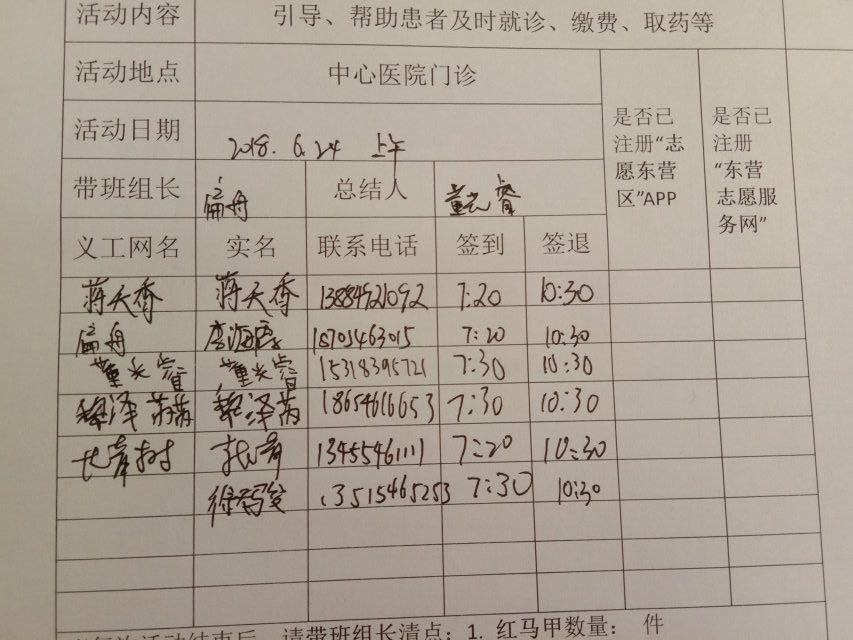 活动内容 引导、帮助患者及时就诊、缴费、取药等
活动地点 中心医院门诊 是否已注册“志愿东营区”APP 是否已注册“东营志愿服务网”
活动日期 2018.6.24 上午
带班组长 扁舟 总结人 董 睿
义工网名 实名 联系电话 签到 签退
蒋天香 蒋天香 13884921092 7:20 10:30
扁舟 李海 18705463015 7:20 10:30
董 睿 董 睿 15318395721 7:30 10:30
泽 泽 18654616653 7:30 10:30
长青树 13455461111 7:20 10:30
徐 13515465253 7:30 10:30
活动结束后，请带班组长清点：1. 红马甲数量： 件